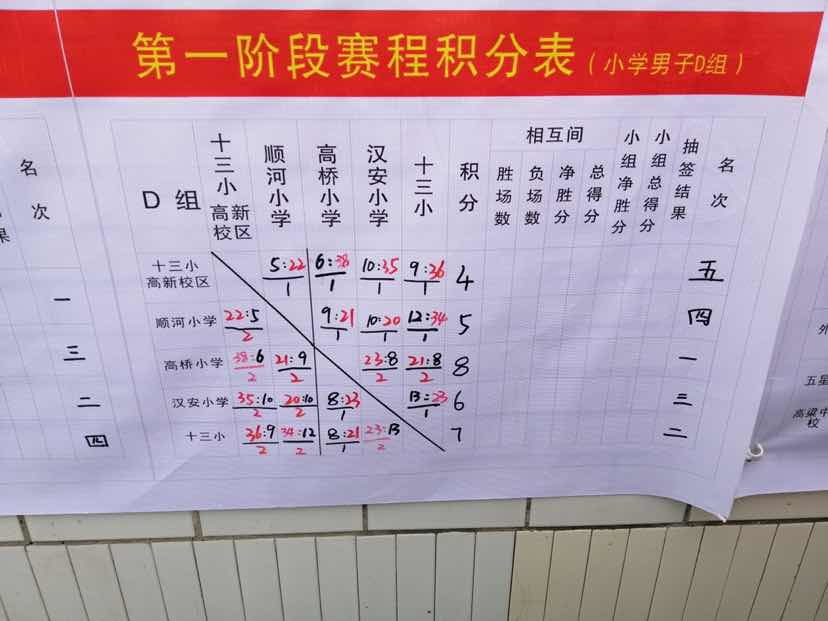 第一阶段赛程积分表（小学男子D组）
名次
果
一
三
二
四
D 组 十三小高新校区 顺河小学 高桥小学 汉安小学 十三小 积分 相互间 胜场数 负场数 净胜分 总得分 小组净胜分 小组总得分 抽签结果 名次
十三小高新校区 5:22 1 6:38 1 10:35 1 9:36 1 4 五
顺河小学 22:5 2 9:21 1 10:20 1 12:34 1 5 四
高桥小学 38:6 2 21:9 2 23:8 2 21:8 2 8 一
汉安小学 35:10 2 20:10 2 8:23 1 13:23 1 6 三
十三小 36:9 2 34:12 2 8:21 1 23:13 2 7 二
外
五星
高梁中
校